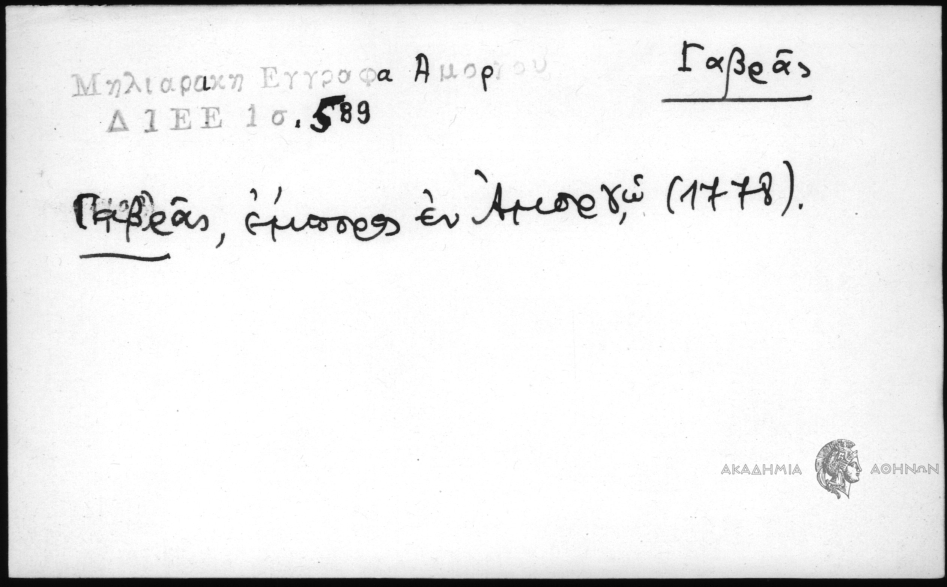 Γαβρᾶς
Μηλιαρακη Εγγραφα Αμοργου
ΔΙΕΕ 1 σ. 589
Γαβρᾶς, ἔμπορος ἐν Ἀμοργῷ (1778).
ΑΚΑΔΗΜΙΑ ΑΘΗΝΩΝ